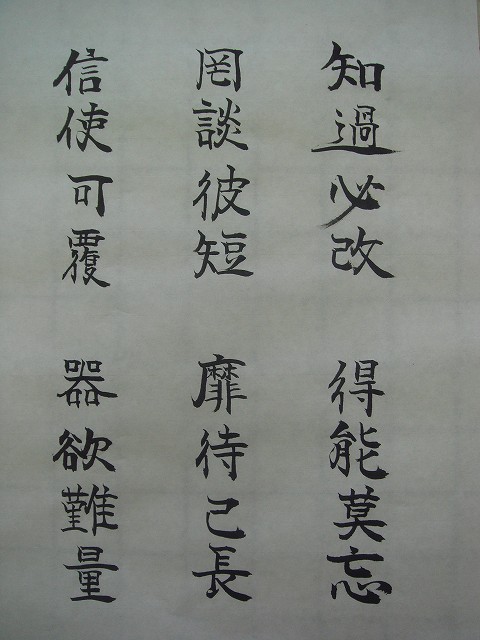 知過必改 得能莫忘
罔談彼短 靡待己長
信使可覆 器欲難量